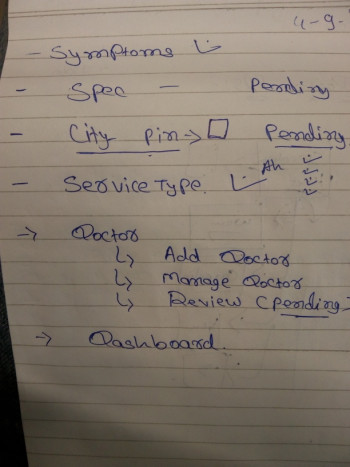 4-9-
- Symptoms ✓
- Spec - Pending
- City Pin → □ Pending
- Service Type. ✓ All ✓ ✓ ✓ ✓
→ Doctor
↳ Add Doctor
↳ Manage Doctor
↳ Review (Pending)
→ Dashboard.